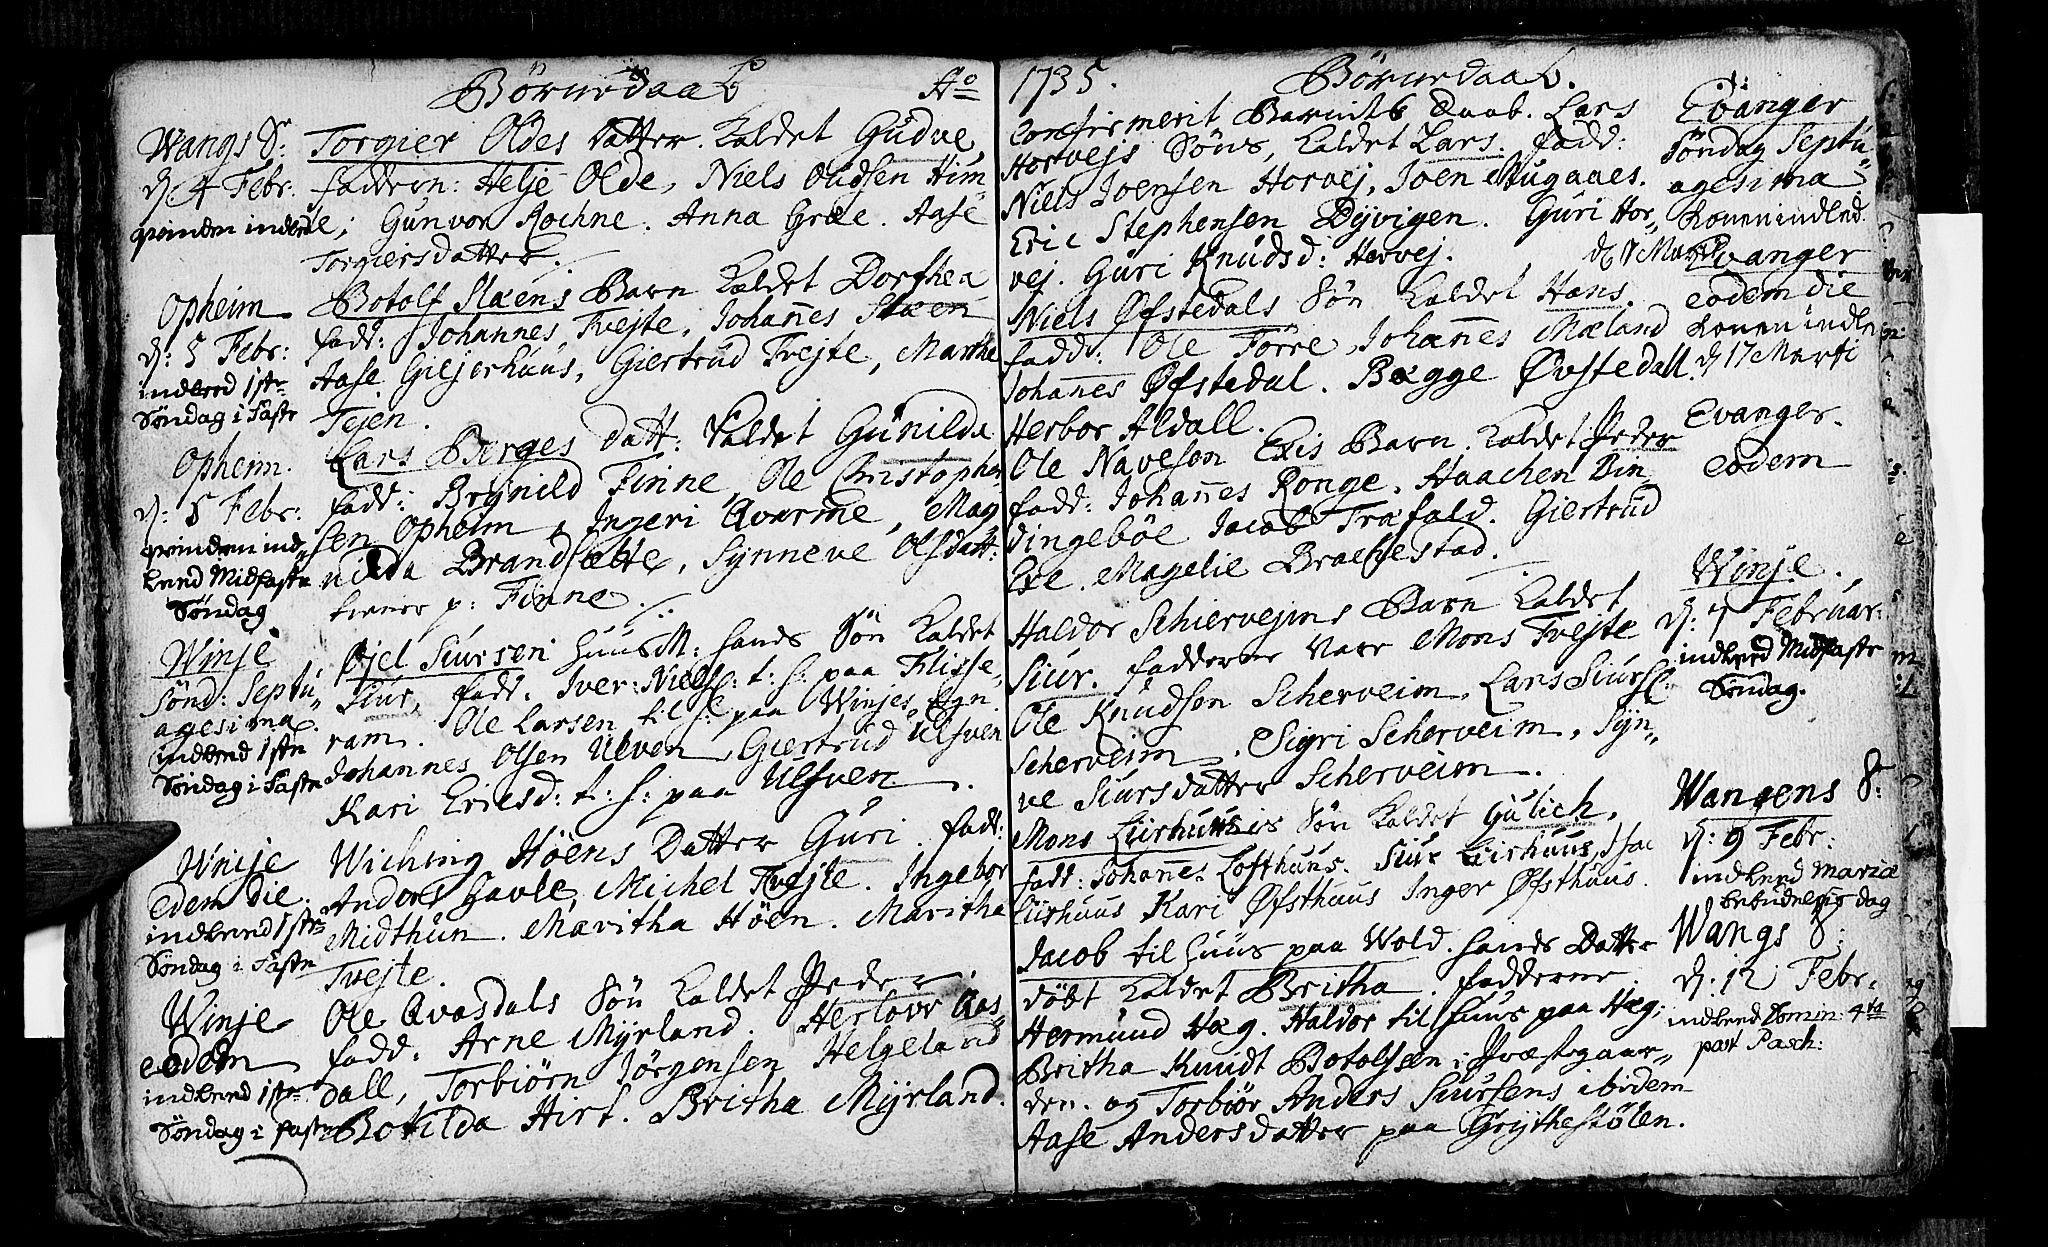 Børnedaab Aº
Wangs S:
d: 4 Febr:
qvinden indled
Torgier Oldes Datter. Kaldet Gudve,
faddern: Helje Olde, Niels Olldsen Him-
le; Gunvor Rochne. Anna Græe. Aase
Torgiersdatter.
Opheim
d: 5 Febr:
indleed 1ste
Søndag i Faste
Botolf Slæens Barn Kaldet Dorthea
fadd: Johannes, Tvejte, Johannes Slæen
Aase Giljerhuus, Giertrud Tvejte, Marthe
Tejen.
Opheim.
d: 5 Febr:
qvinden ind-
leed Midfaste
Søndag
Lars Berges Datt: Kaldet Gunilda
fadd: Brynild Finne, Ole Christopher
sen Opheim, Ingeri Qvarme, Mag
nilda Brandsætte, Synneve Olsdatt:
tiener p: Finne.
Winje
Sønd: Septu-
agesima.
indleed 1ste
Søndag i Faste
Øjel Siursen HuusM: hands Søn Kaldet
Siur, fadd. Iver Niels: t: h: paa Flisse-
ram. Ole Larsen til h: paa Winjes Egn.
Johannes Olsen Ulven, Giertrud Ulfven
Kari Ericsd: t: h: paa Ulfven.
Winje
edem die.
indleed 1ste
Søndag i Faste
Wiching Høens Datter Guri. fadd:
Anders Havle, Michel Tvejte. Ingebor
Midthun. Maritha Høen. Maritha
Tvejte.
Winje
eodem
indleed 1ste
Søndag i faste
Ole Qvasdals Søn Kaldet Peder
fadd: Arne Myrland. Herlovr Aas-
dall, Torbiørn Jørgensen Helgeland
Botilda Hirt. Britha Myrland.
1735. Børnedaab.
Confirmerit Barnets Daab. Lars
Horvejs Søns, Kaldet Lars. fadd:
Niels Joensen Horvej, Joen Mugaaes.
Eric Stephensen Dyvigen. Guri Hor-
vej. Guri Knudsd: Horvej.
Evanger
Søndag Septu-
agesima
Konen indled
d 17 Marti
Niels Øfstedals Søn Kaldet Hans.
fadd: Ole Förre, Johannes Mæland
Johannes Øfstedal. Bægge Øvstedall.
Herbor Aldall.
Evanger
eodem die
Konen indled
d 17 Marti
Ole Naveson Exis Barn Kaldet Peder
fadd: Johannes Ronge. Haachen Bin-
dingebøe Jacob Træfald. Giertrud
Exe. Magelie Brachestad.
Evanger.
eodem
Haldor Schiervejms Barn Kaldet
Siur. fadderne vare Mons Tvejte
Ole Knudsen Scherveim, Lars Siurs:
Scherveim, Sigri Scherveim, Syn-
ve Siursdatter Scherveim.
Winje.
d: 7 Februar:
indleed Midfaste
Søndag.
Mons Liirhuuses Søn Kaldet Gulich,
fadd: Johannes Lofthuus. Siur Liirhuus, Isac
Liirhuus Kari Øfsthuus Inger Øfsthuus.
Wangens S:
d: 9 Febr:
indleed Mariæ
bebudelsis dag
Jacob til huus paa Wold. hands Datter
døbt Kaldet Britha. fadderne
Hermund Hæg. Haldor til huus paa Hæg:
Britha Knudt Botolfsen i Præstgaar-
den. og Torbiør Anders Siursens ibidem
Aase Andersdatter paa Grythestølen.
Wangs S:
d: 12 Febr.
indleed Domin: 4ta
post Pasch: